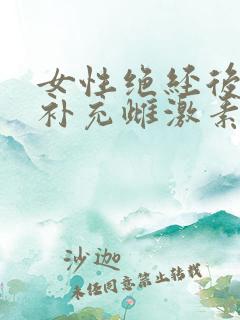 女性绝经後
补充雌激素
沙迦
未经同意禁止转载